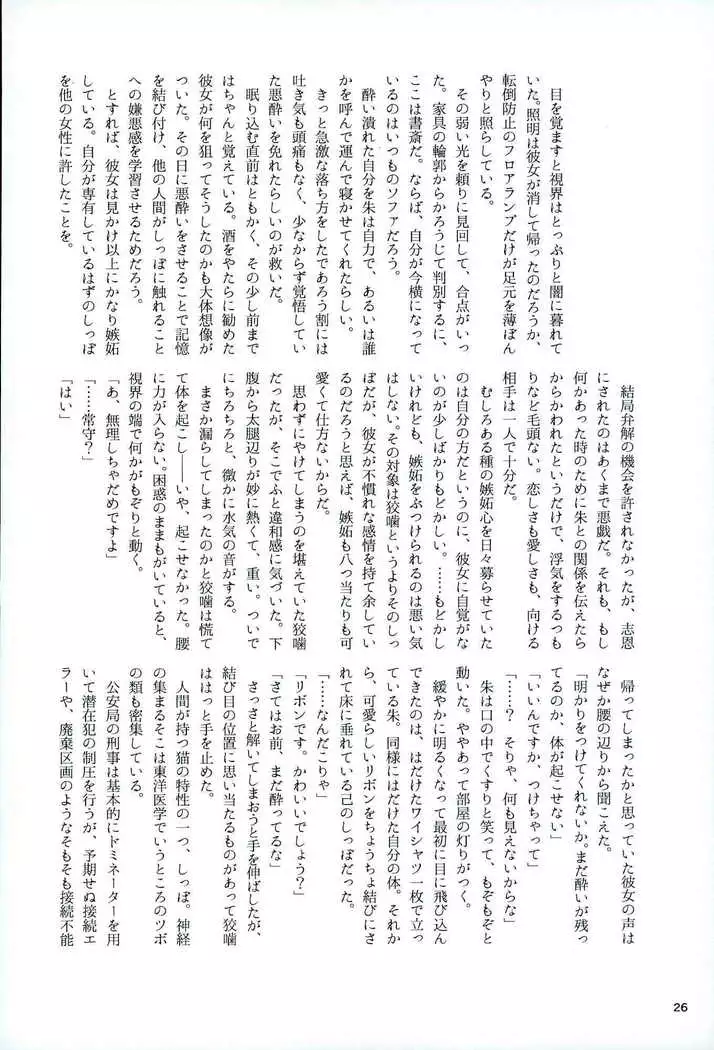 目を覚ますと視界はとっぷりと闇に暮れて
いた。照明は彼女が消して帰ったのだろうか、
転倒防止のフロアランプだけが足元を薄ぼん
やりと照らしている。
　その弱い光を頼りに見回して、合点がいっ
た。家具の輪郭からかろうじて判別するに、
ここは書斎だ。ならば、自分が今横になって
いるのはいつものソファだろう。
　酔い潰れた自分を朱は自力で、あるいは誰
かを呼んで運んで寝かせてくれたらしい。
　きっと急激な落ち方をしたであろう割には
吐き気も頭痛もなく、少なからず覚悟してい
た悪酔いを免れたらしいのが救いだ。
　眠り込む直前はともかく、その少し前まで
はちゃんと覚えている。酒をやたらに勧めた
彼女が何を狙ってそうしたのかも大体想像が
ついた。その日に悪酔いをさせることで記憶
を結び付け、他の人間がしっぽに触れること
への嫌悪感を学習させるためだろう。
　とすれば、彼女は見かけ以上にかなり嫉妬
している。自分が専有しているはずのしっぽ
を他の女性に許したことを。
　結局弁解の機会を許されなかったが、志恩
にされたのはあくまで悪戯だ。それも、もし
何かあった時のために朱との関係を伝えたら
からかわれたというだけで、浮気をするつも
りなど毛頭ない。恋しさも愛しさも、向ける
相手は一人で十分だ。
　むしろある種の嫉妬心を日々募らせていた
のは自分の方だというのに、彼女に自覚がな
いのが少しばかりもどかしい。……もどかし
いけれども、嫉妬をぶつけられるのは悪い気
はしない。その対象は狡噛というよりそのしっ
ぽだが、彼女が不慣れな感情を持て余してい
るのだろうと思えば、嫉妬も八つ当たりも可
愛くて仕方ないからだ。
　思わずにやけてしまうのを堪えていた狡噛
だったが、そこでふと違和感に気づいた。下
腹から太腿辺りが妙に熱くて、重い。ついで
にちろちろと、微かに水気の音がする。
　まさか漏らしてしまったのかと狡噛は慌て
て体を起こし――いや、起こせなかった。腰
に力が入らない。困惑のままもがいていると、
視界の端で何かがもぞりと動く。
「あ、無理しちゃだめですよ」
「……常守？」
「はい」
　帰ってしまったかと思っていた彼女の声は
なぜか腰の辺りから聞こえた。
「明かりをつけてくれないか。まだ酔いが残っ
てるのか、体が起こせない」
「いいんですか、つけちゃって」
「……？　そりゃ、何も見えないからな」
　朱は口の中でくすりと笑って、もぞもぞと
動いた。ややあって部屋の灯りがつく。
　緩やかに明るくなって最初に目に飛び込ん
できたのは、はだけたワイシャツ一枚で立っ
ている朱。同様にはだけた自分の体。それか
ら、可愛らしいリボンをちょうちょ結びにさ
れて床に垂れている己のしっぽだった。
「……なんだこりゃ」
「リボンです。かわいいでしょう？」
「さてはお前、まだ酔ってるな」
　さっさと解いてしまおうと手を伸ばしたが、
結び目の位置に思い当たるものがあって狡噛
ははっと手を止めた。
　人間が持つ猫の特性の一つ、しっぽ。神経
の集まるそこは東洋医学でいうところのツボ
の類も密集している。
　公安局の刑事は基本的にドミネーターを用
いて潜在犯の制圧を行うが、予期せぬ接続エ
ラーや、廃棄区画のようなそもそも接続不能
26